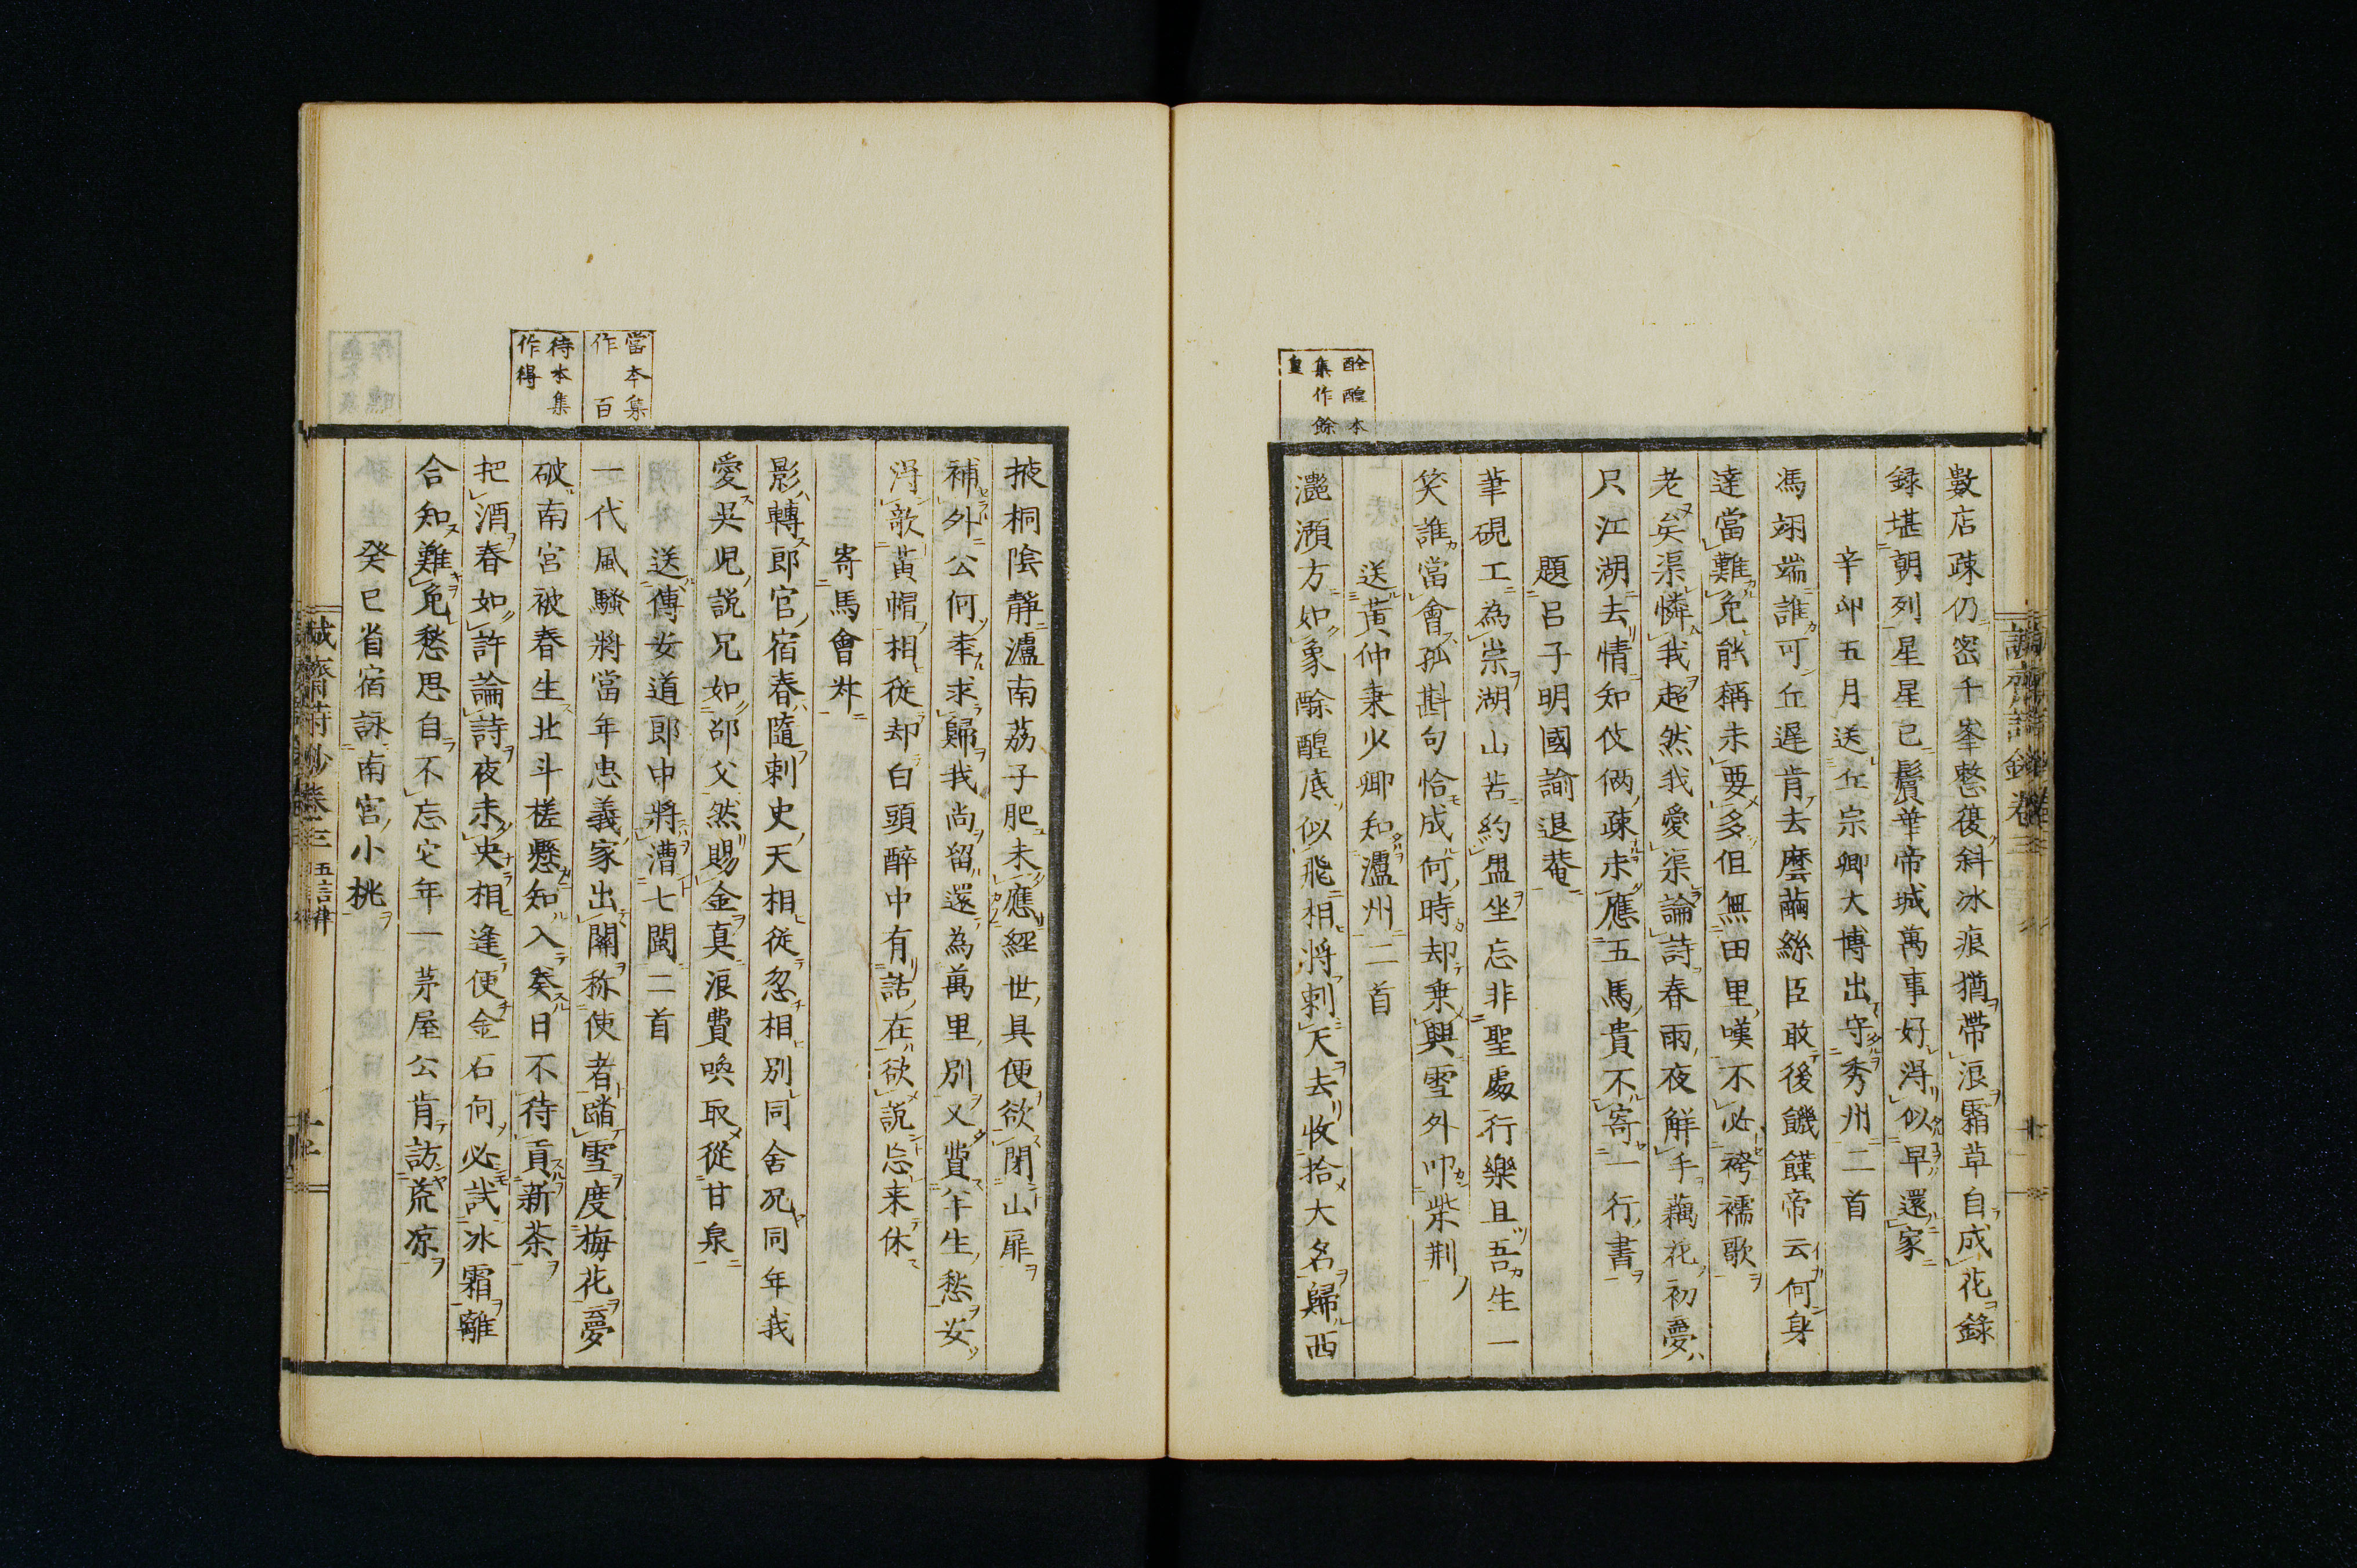 數店疎仍密千峯整復斜冰痕猶帶浪霜草自成花錄
録堪朝列星星已鬢華帝城萬事好淂似早還家
辛卯五月送丘宗卿大博出守秀州二首
馮翊端誰可丘遲肯去麽繭絲臣敢後饑饉帝云何身
達當難免能稱未要多但無田里嘆不必袴襦歌
老矣渠憐我超然我愛渠論詩春雨夜解手藕花初夢
只江湖去情知伎倆疎未應五馬貴不寄一行書
題呂子明國諭退菴
筆硯工為祟湖山苦約盟坐忘非聖處行樂且吾生一
笑誰當會孤斟句恰成何時却乗興雪外叩柴荆
送黄仲秉少卿知瀘州二首
灔澦方如象酴醒底似飛相将刺天去收拾大名歸西
酴醒本
集作餘
皇
掖桐陰靜瀘南荔子肥未應經世具便欲閉山扉
補外公何奉求歸我尚留還為萬里別又費半生愁安
淂歌黃帽相從却白頭醉中有話在欲説忘来休
寄馬會卅
影轉郎官宿春隨刺史天相從忽相別同舍况同年我
愛吳児説兄如邵父然賜金真浪費喚取從甘泉
送傅安道郎中將漕七閩二首
一代風騷將當年忠義家出關称使者踏雪度梅花夢
破南宮被春生北斗槎懸知入癸日不待貢新茶
把酒春如許論詩夜未央相逢便金石何必試冰霜離
合知難免愁思自不忘它年一茅屋公肯訪荒凉
癸巳省宿詠南宮小桃
當本集
作百
待本集
作得
誠齋詩鈔卷三 五言律